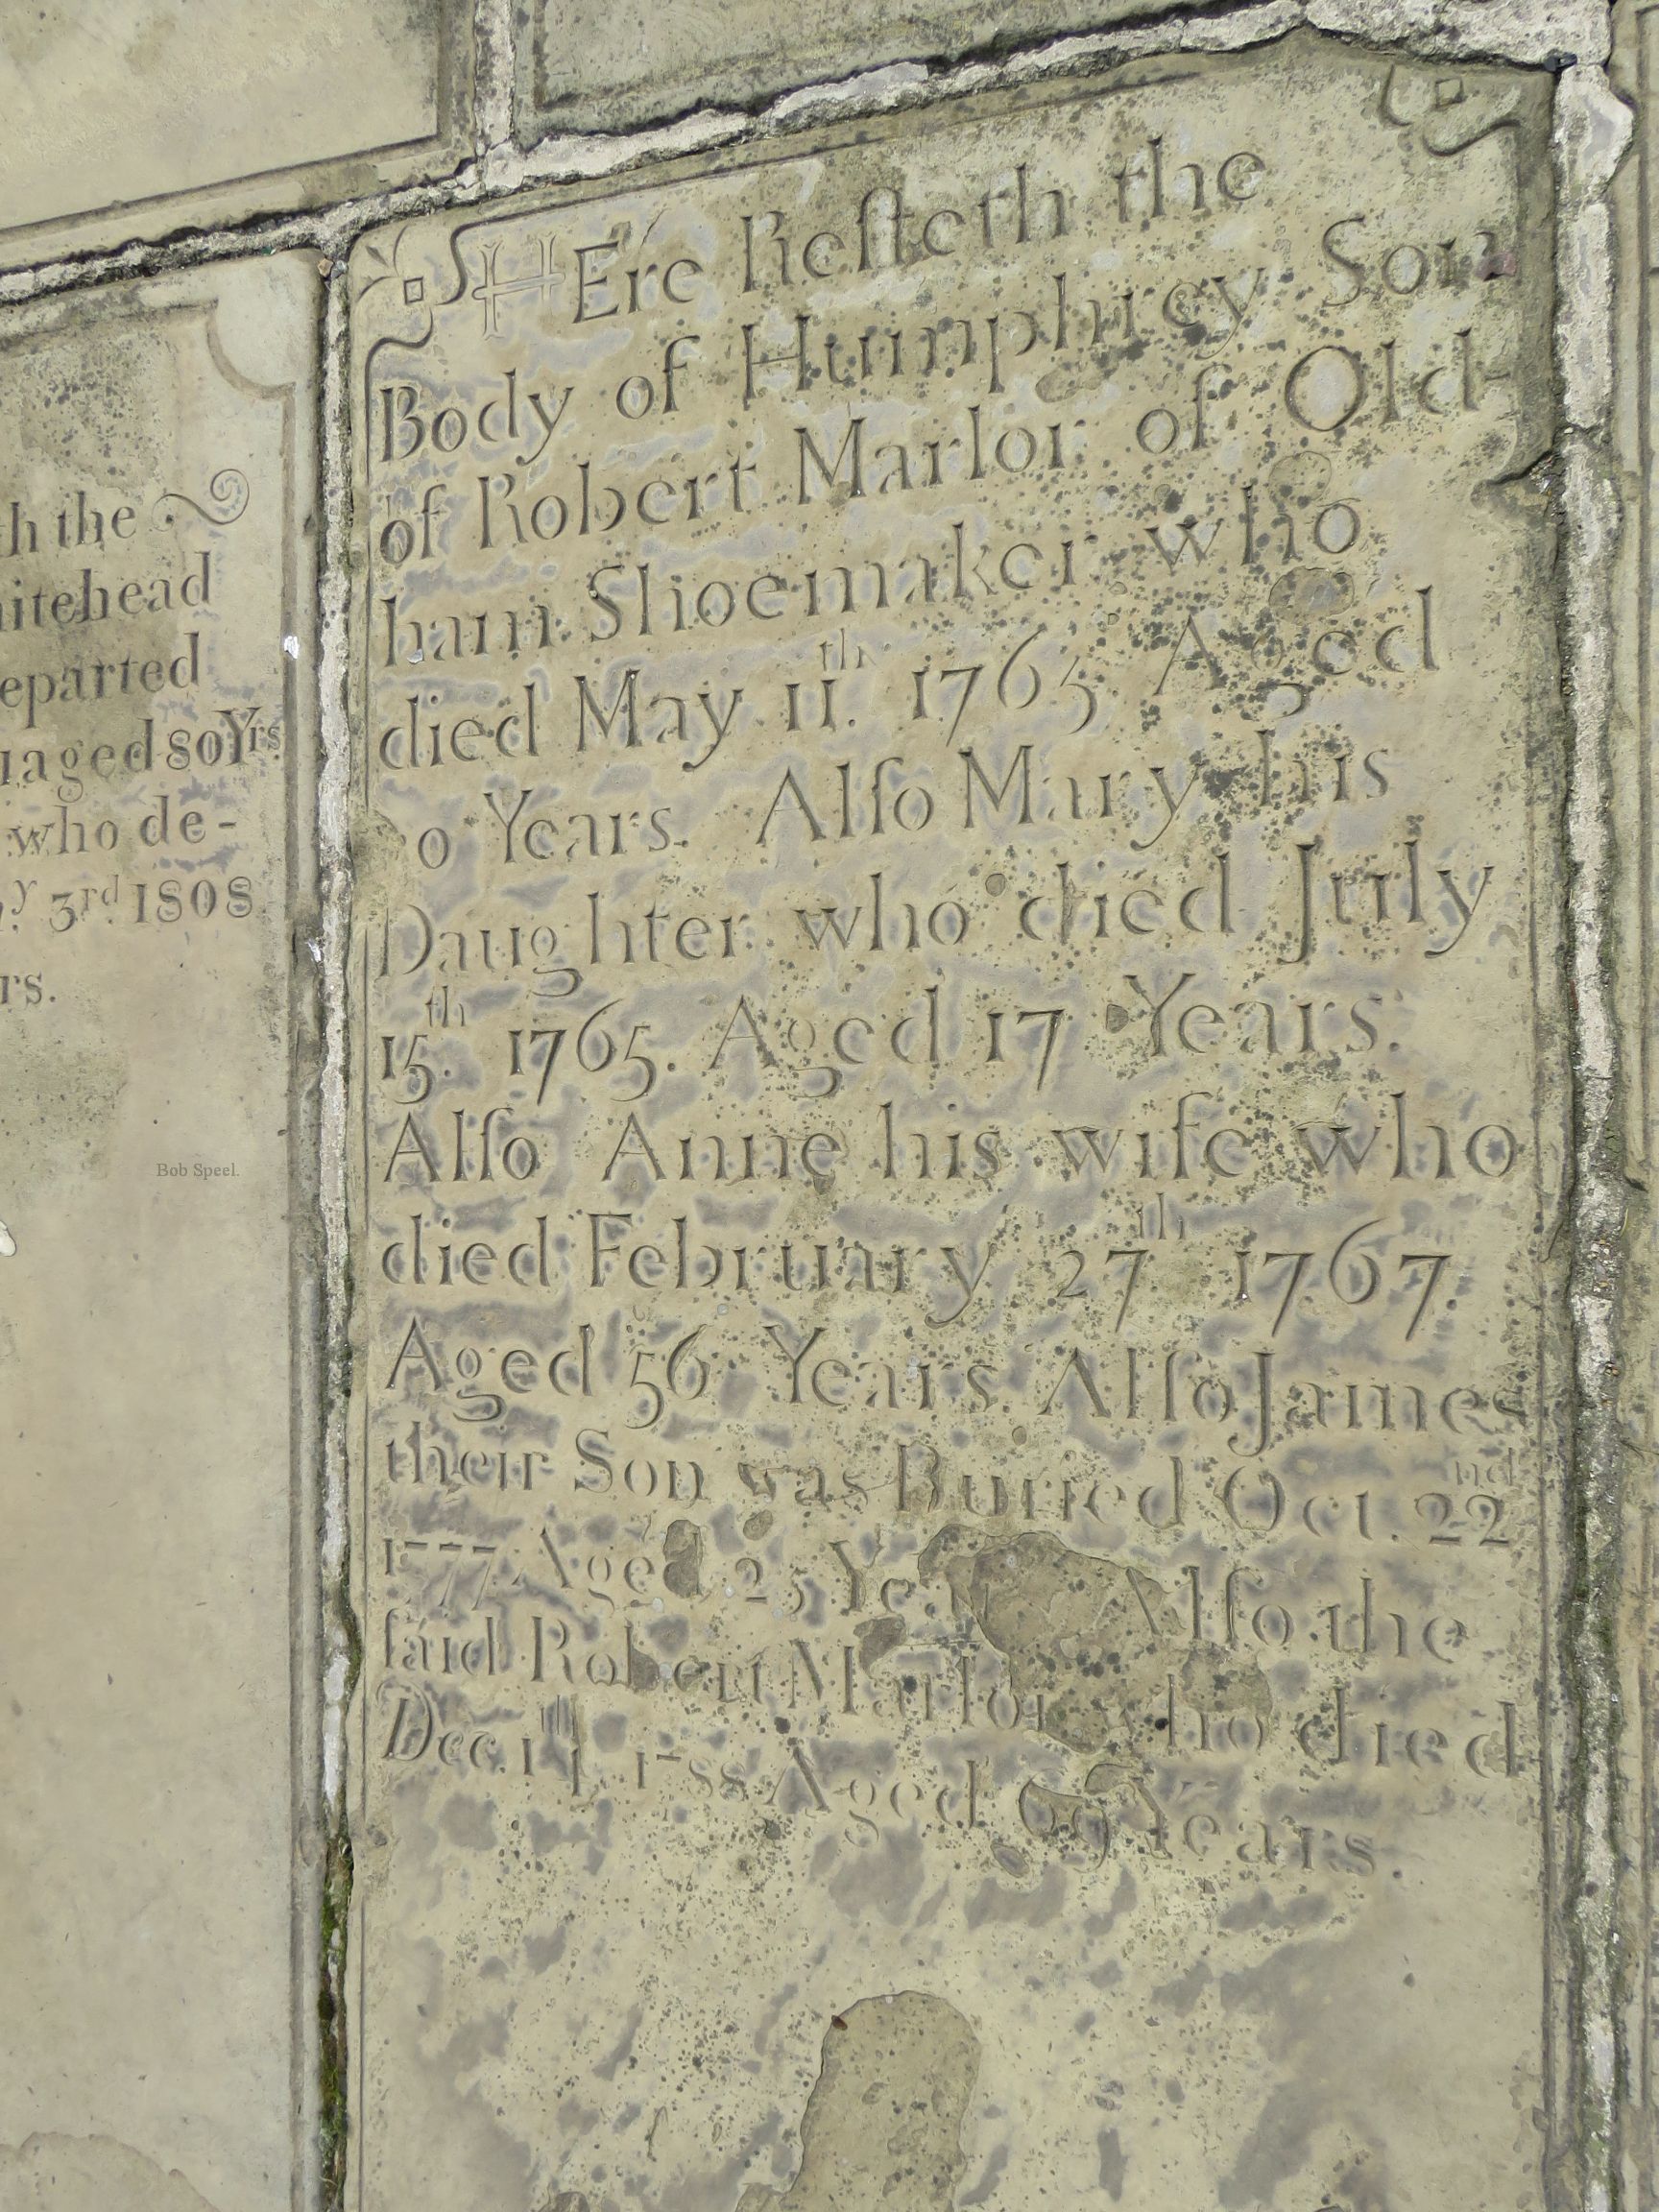 HEre Resteth the
Body of Humphrey Son
of Robert Marlor of Old-
ham Shoemaker who
died May 11th. 1765 Aged
Years. Alſo Mary his
Daughter who died July
15th. 1765. Aged 17 Years.
Alſo Anne his wife who
died February 27th 1767
Aged 56 Years Alſo James
their Son was Buried Oct. 22nd
1777 Aged 25 Years Alſo the
ſaid Robert Marlor who died
Dec. 1788 Aged Years.
h the
hitehead
eparted
aged 80 Yrs
who de-
y 3rd 1808
rs.
Bob Speel.